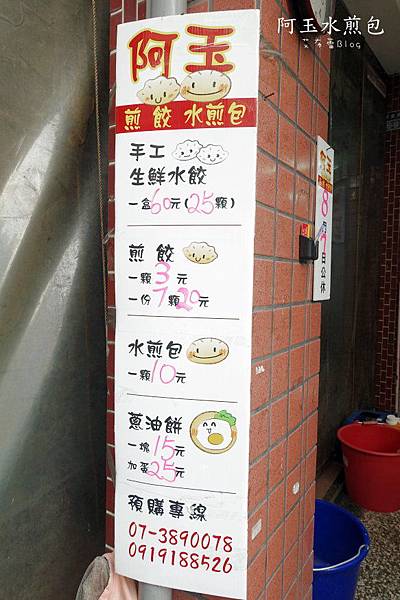 阿玉水煎包
艾布蕾Blog
阿玉
煎餃 水煎包
手工
生鮮水餃
一盒60元(25顆)
煎餃
一顆3元
一份7顆20元
水煎包
一顆10元
蔥油餅
一塊15元
加蛋25元
預購專線
07-3890078
0919188526
阿玉
8
日公休